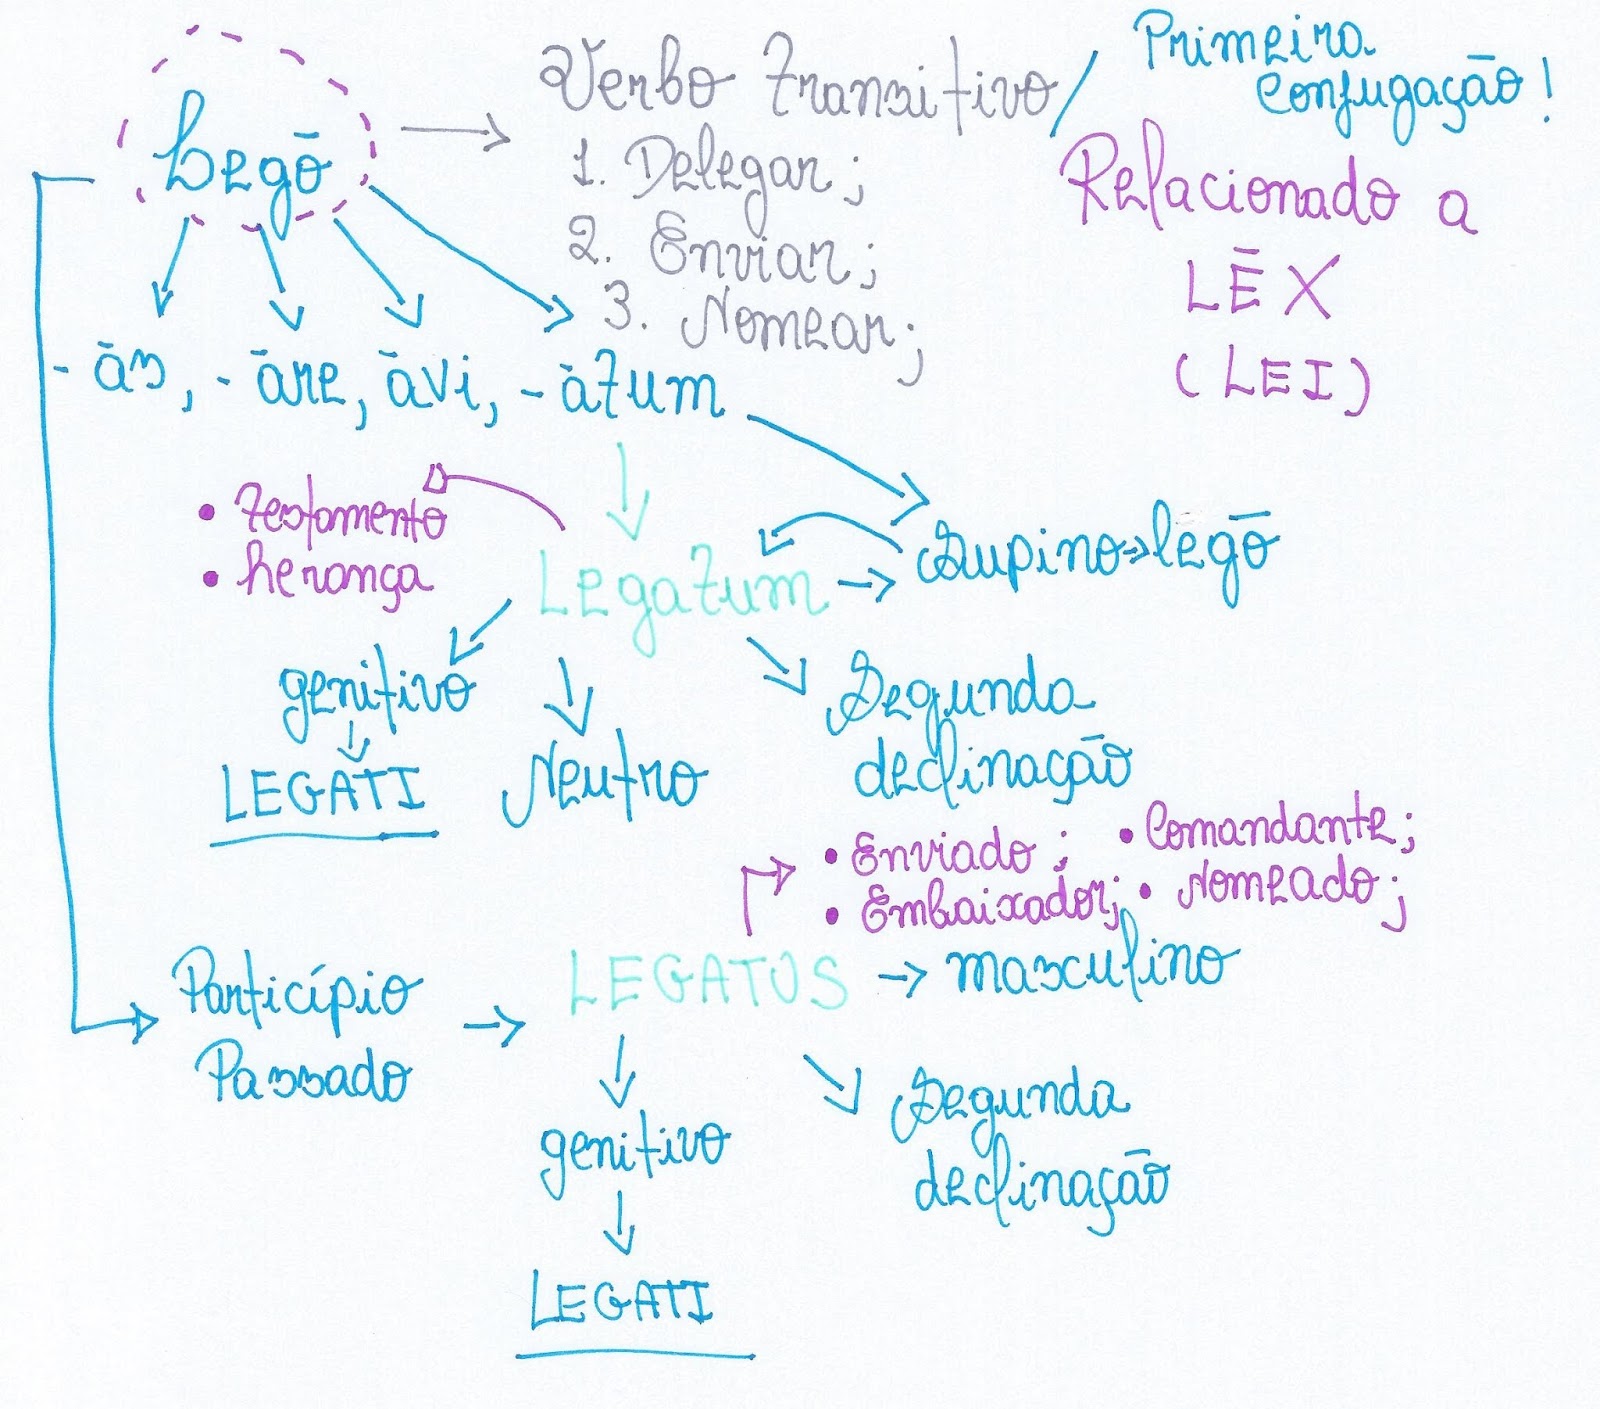 Legō
Verbo Transitivo /
Primeira
Conjugação!
1. Delegar;
2. Enviar;
3. Nomear;
Relacionado a
LĒX
(LEI)
- ās, - āre, āvi, - ātum
• Testamento
• herança
Legatum
Supino => lēgō
genitivo
LEGATI
Neutro
Segunda
declinação
• Enviado; • Comandante;
• Embaixador; • Nomeado;
Particípio
Passado
LEGATUS
masculino
genitivo
LEGATI
Segunda
declinação